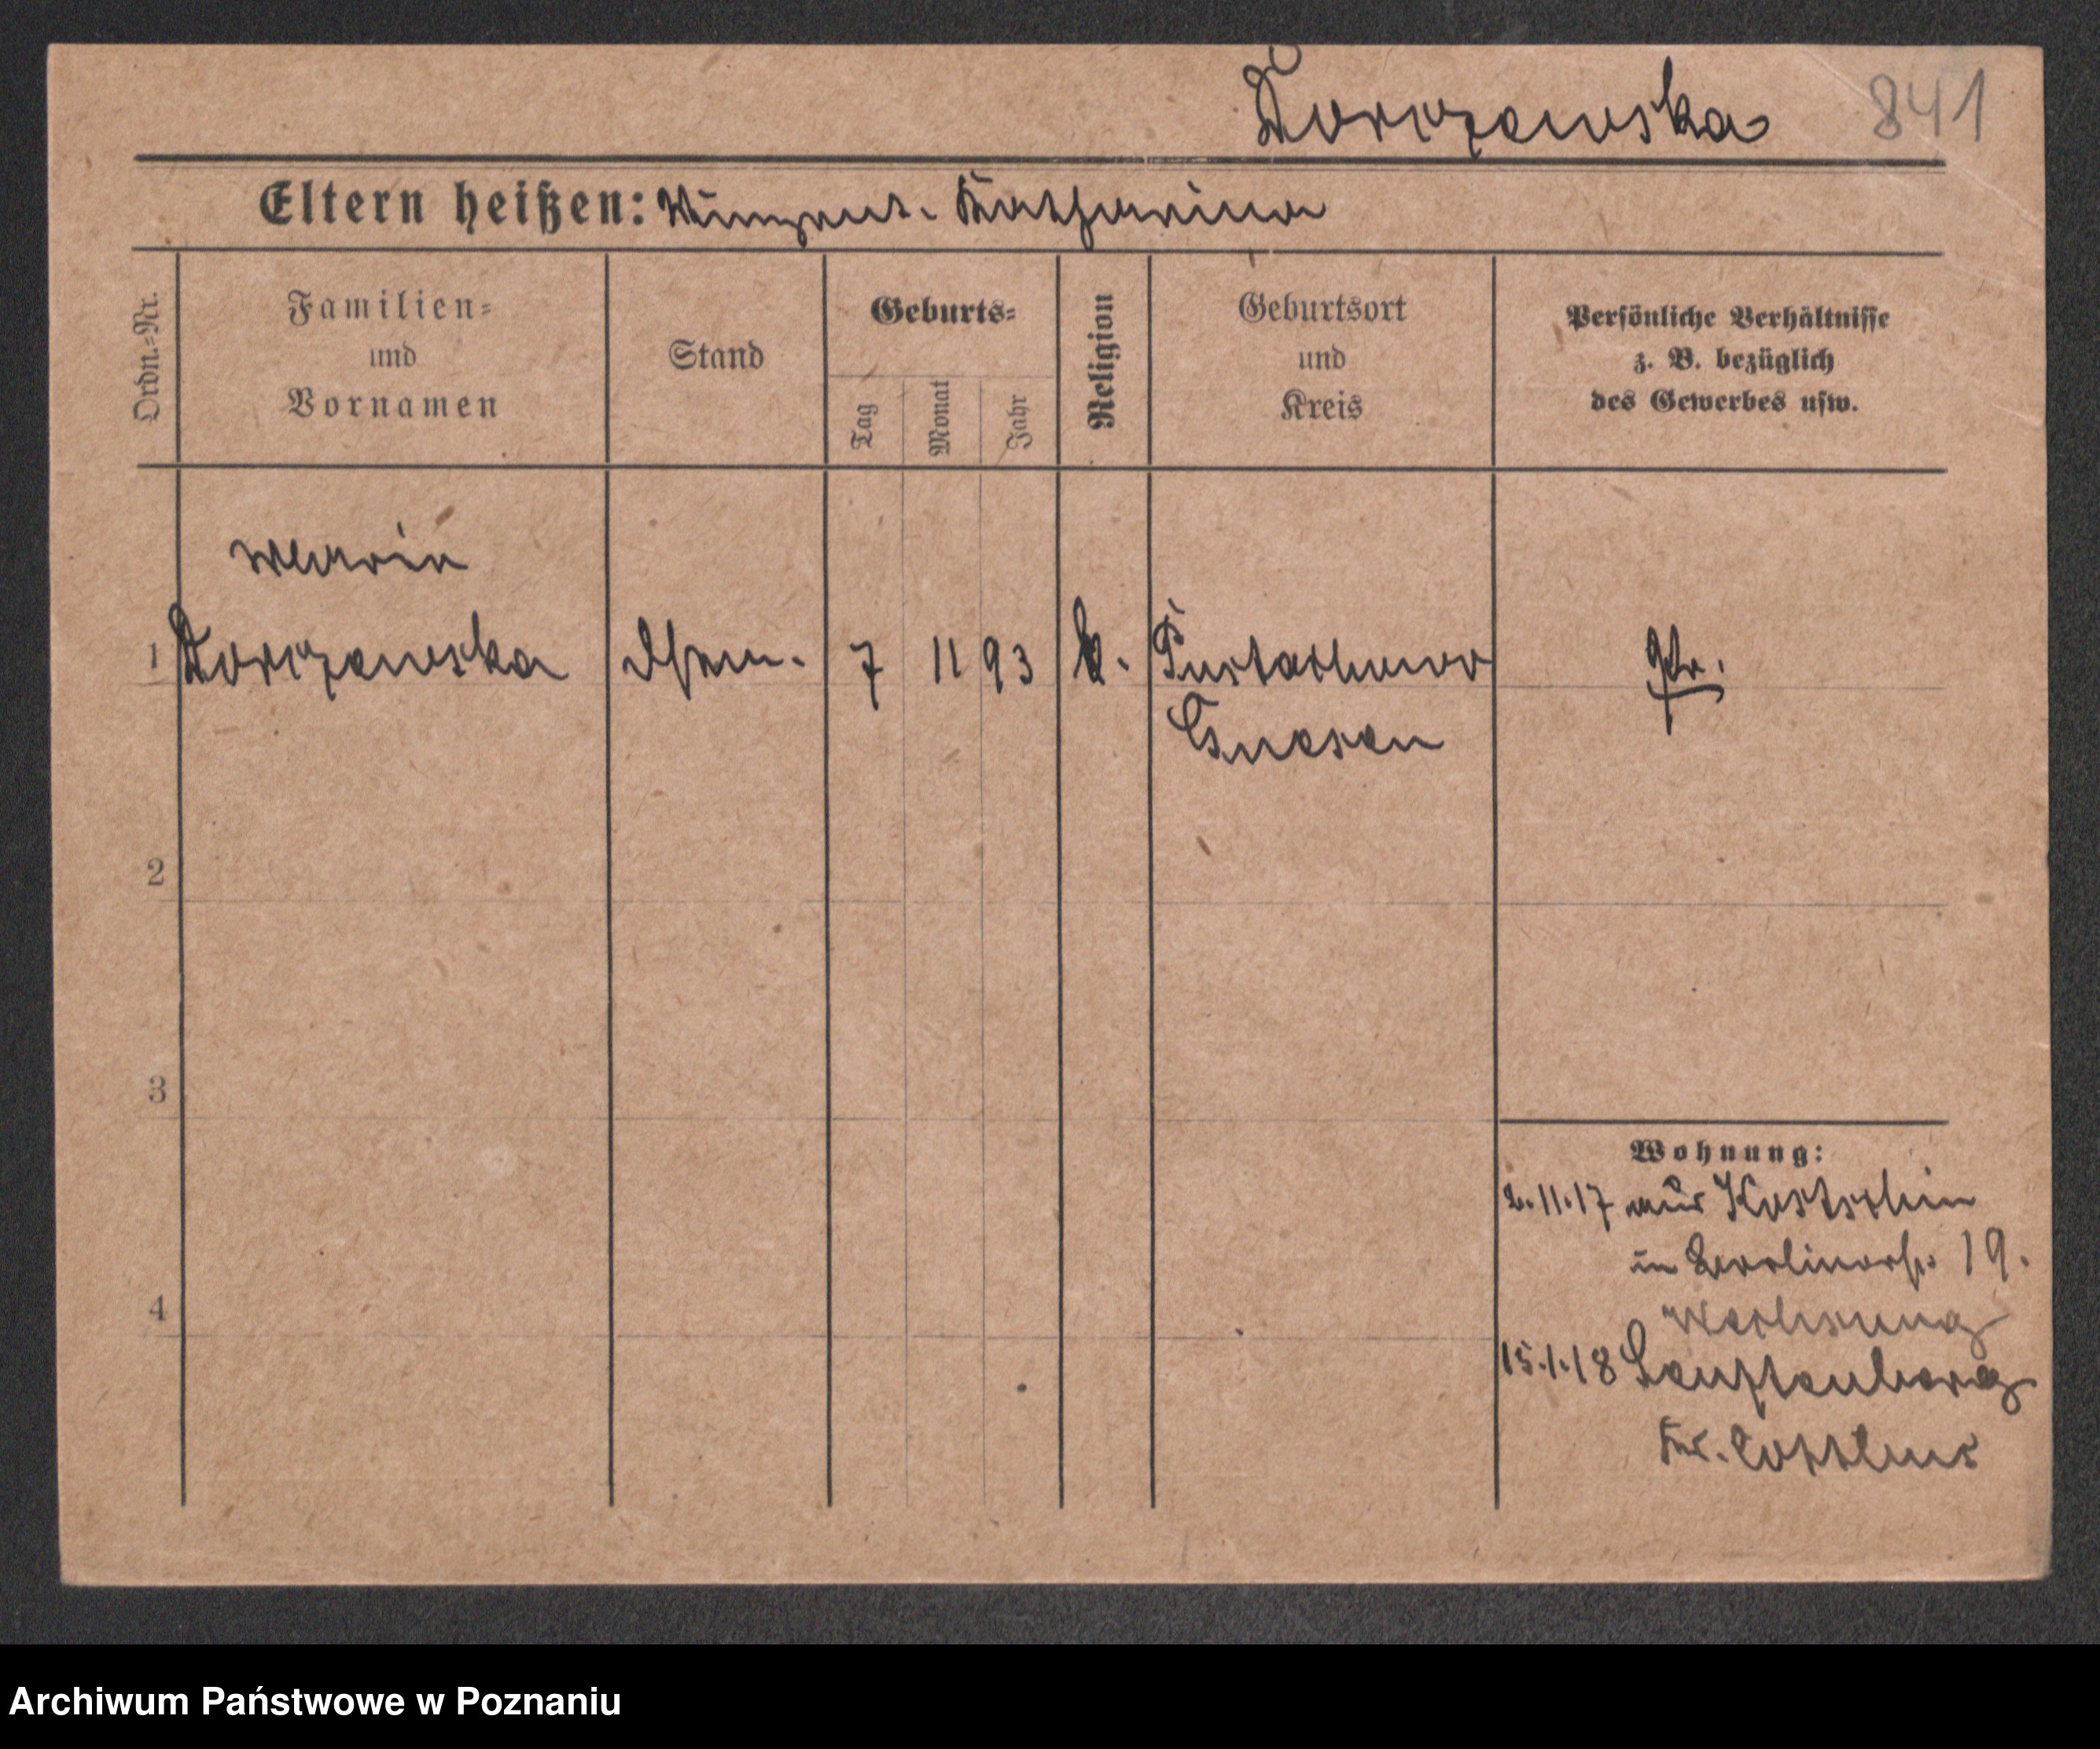 Dorczewska 841
Eltern heißen: Vinzent. Katharina
Ordn.-Nr. Familien- und Vornamen Stand Geburts- Tag Monat Jahr Religion Geburtsort und Kreis Persönliche Verhältnisse z. B. bezüglich des Gewerbes usw.
Maria
1 Dorczewska 7 11 93 k. Pustachowo Pr.
Gnesen
2
3
4
Wohnung:
2.11.17 aus Kostschin
in Berlinerstr. 19.
15.1.18 Senftenberg
Kr. Cottbus
Archiwum Państwowe w Poznaniu